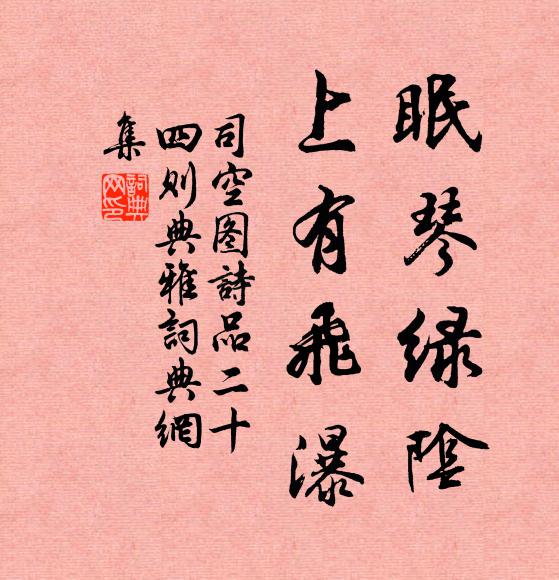 眠琴绿陰
上有飛瀑
司空图詩品二十
四则典雅詞典網
集
詞典网印